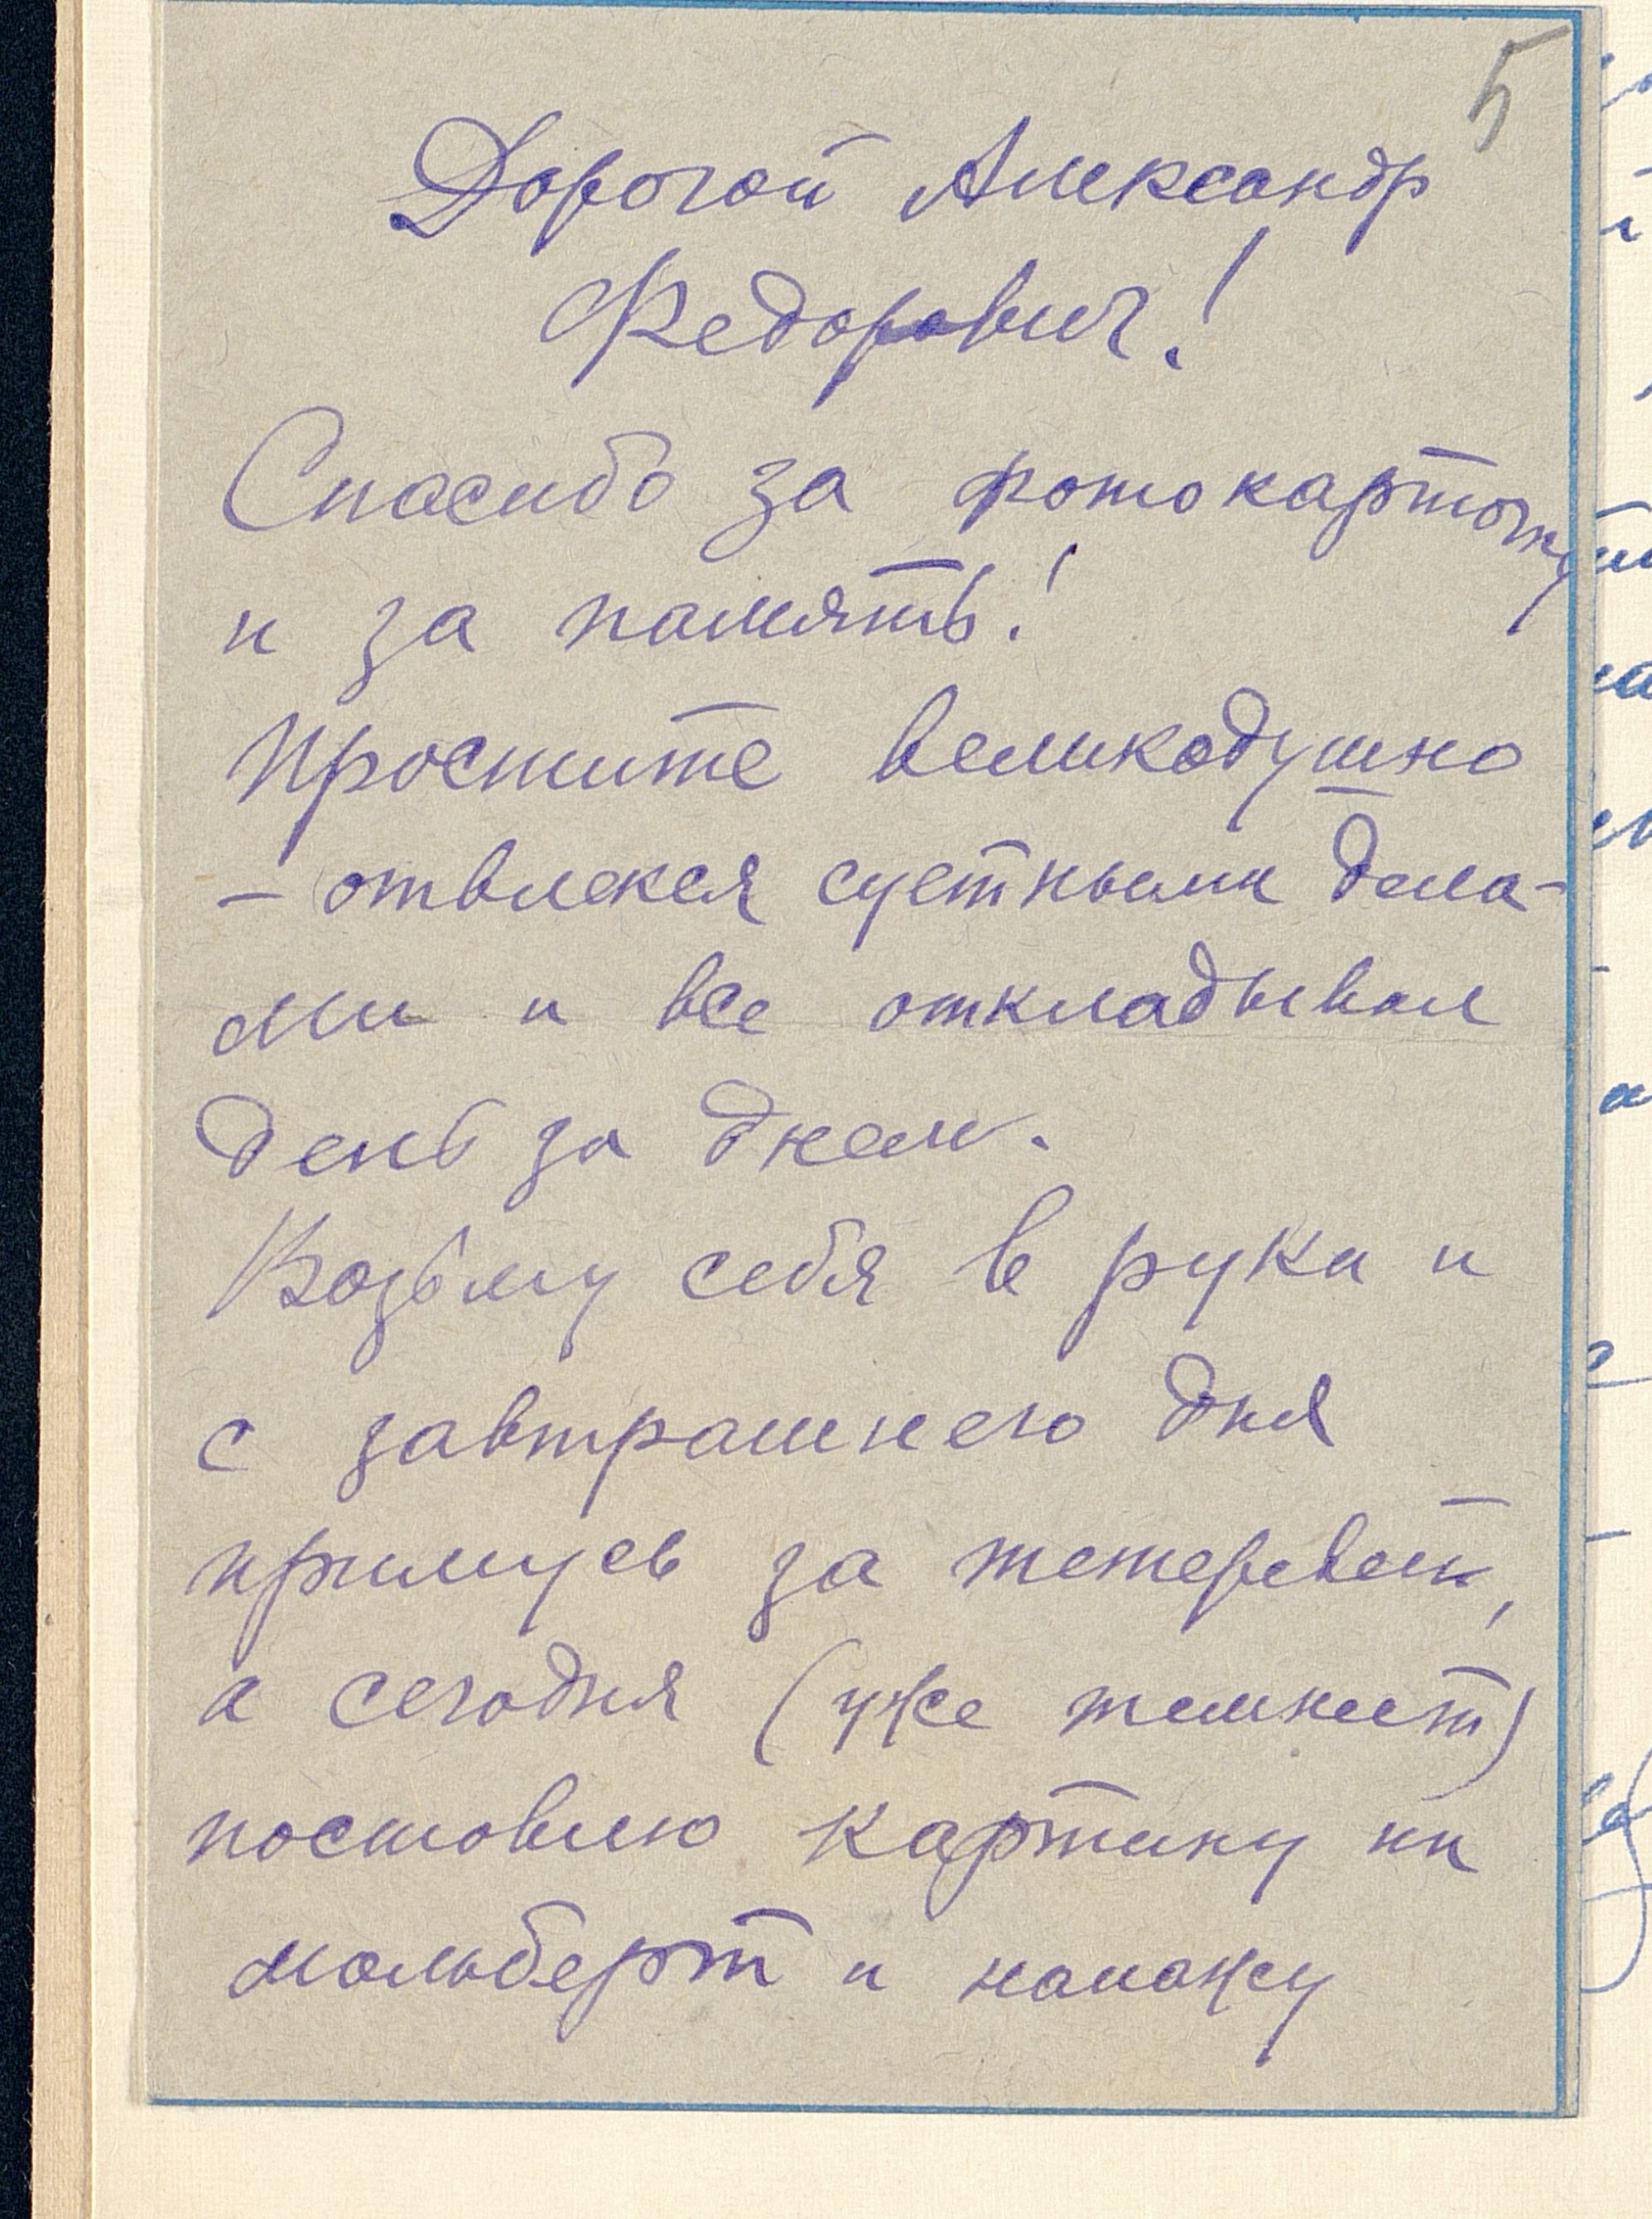 5
Дорогой Александр
Федорович!
Спасибо за фотокарточку
и за память!
Простите великодушно
– отвлекся суетными дела-
ми и все откладывал
день за днем.
Возьму себя в руки и
с завтрашнего дня
примусь за
а сегодня (уже темнеет)
поставлю картину на
мольберт и налажу